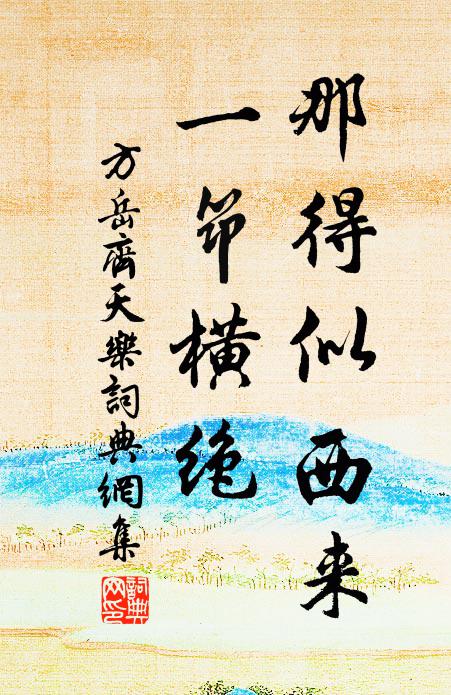 那得似西来
一橫絶
方岳齊天樂詞典網集
詞典
网印